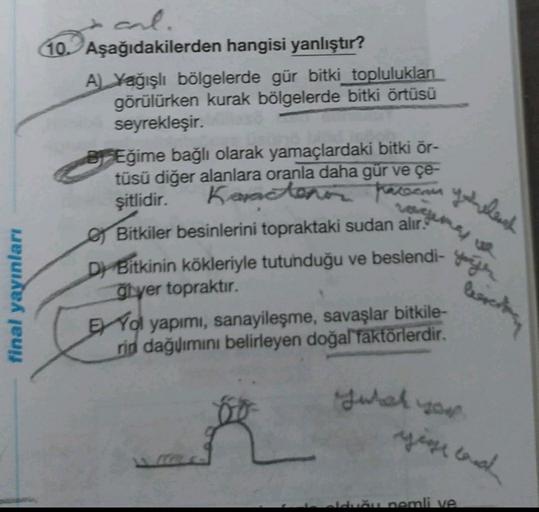 10. Aşağıdakilerden hangisi yanlıştır?
A) Yağışlı bölgelerde gür bitki toplulukları
görülürken kurak bölgelerde bitki örtüsü
seyrekleşir.
B) Eğime bağlı olarak yamaçlardaki bitki ör-
tüsü diğer alanlara oranla daha gür ve çe-
şitlidir.
C) Bitkiler besinlerini topraktaki sudan alır.
D) Bitkinin kökleriyle tutunduğu ve beslendi-
ği yer topraktır.
E) Yol yapımı, sanayileşme, savaşlar bitkile-
rin dağılımını belirleyen doğal faktörlerdir.
final yayınları
olduğu nemli ve